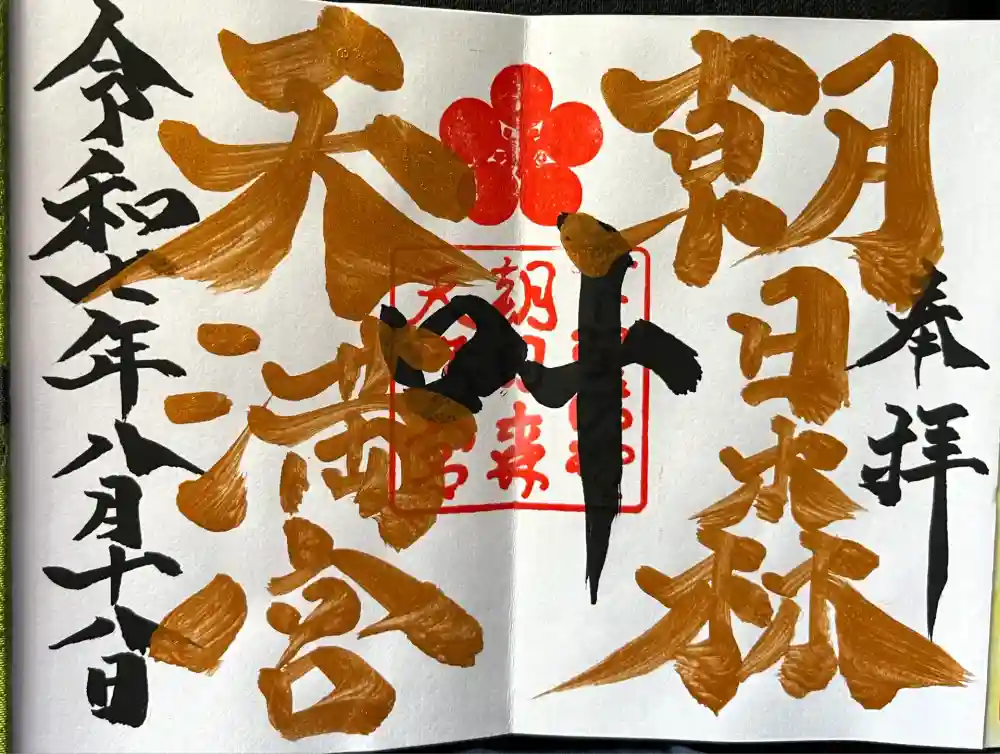 奉拝
朝日森
叶
天満宮
令和六年八月十八日
朝日森
天満宮